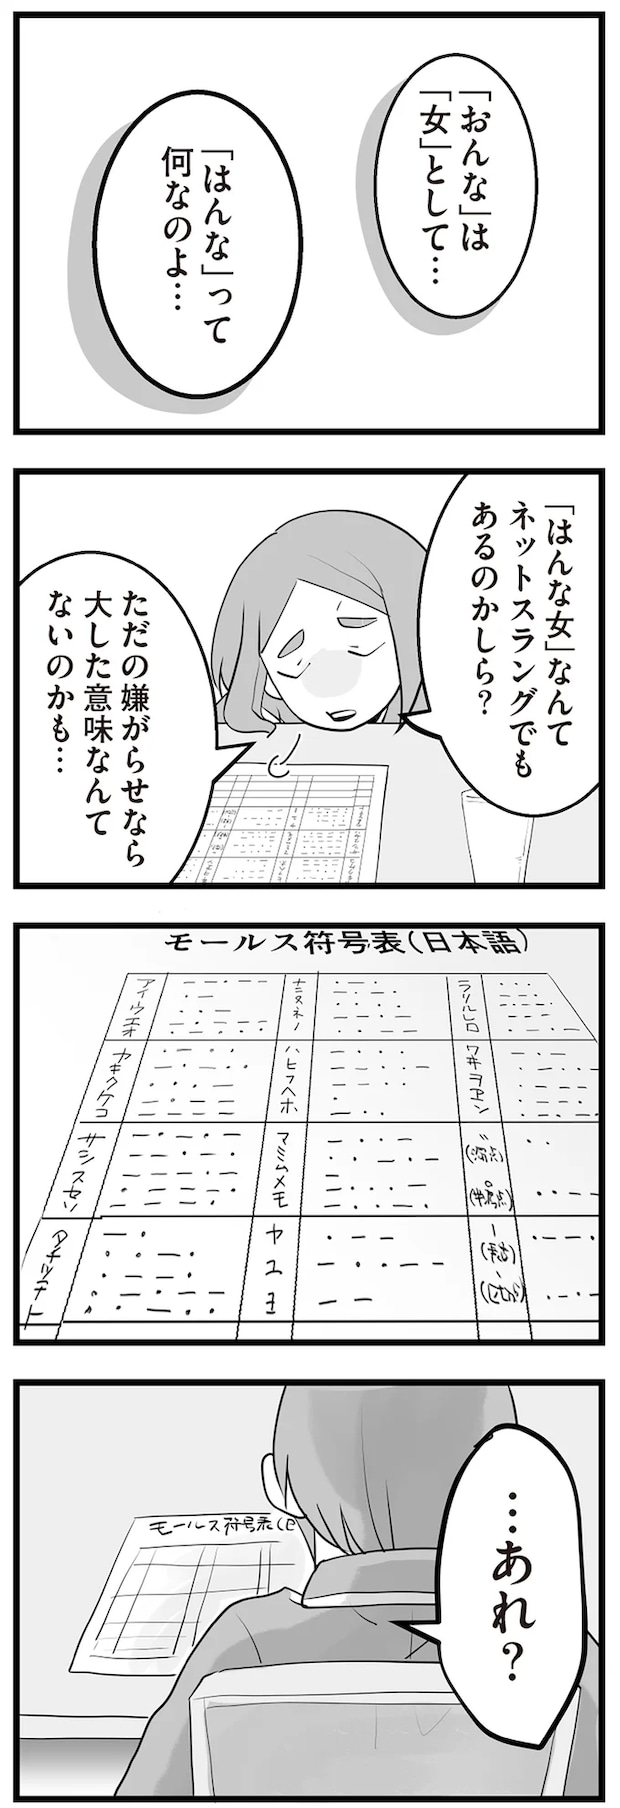 「おんな」は
「女」として…
「はんな」って
何なのよ…
「はんな女」なんて
ネットスラングでも
あるのかしら？
ただの嫌がらせなら
大した意味なんて
ないのかも…
モールス符号表（日本語）
アイウエオ
カキクケコ
サシスセソ
タチツテト
ナニヌネノ
ハヒフヘホ
マミムメモ
ヤ
ユ
ヨ
ラリルレロ
ワヰヲヱン
゛
（濁点）
゜
（半濁点）
モールス符号表（日
…あれ？